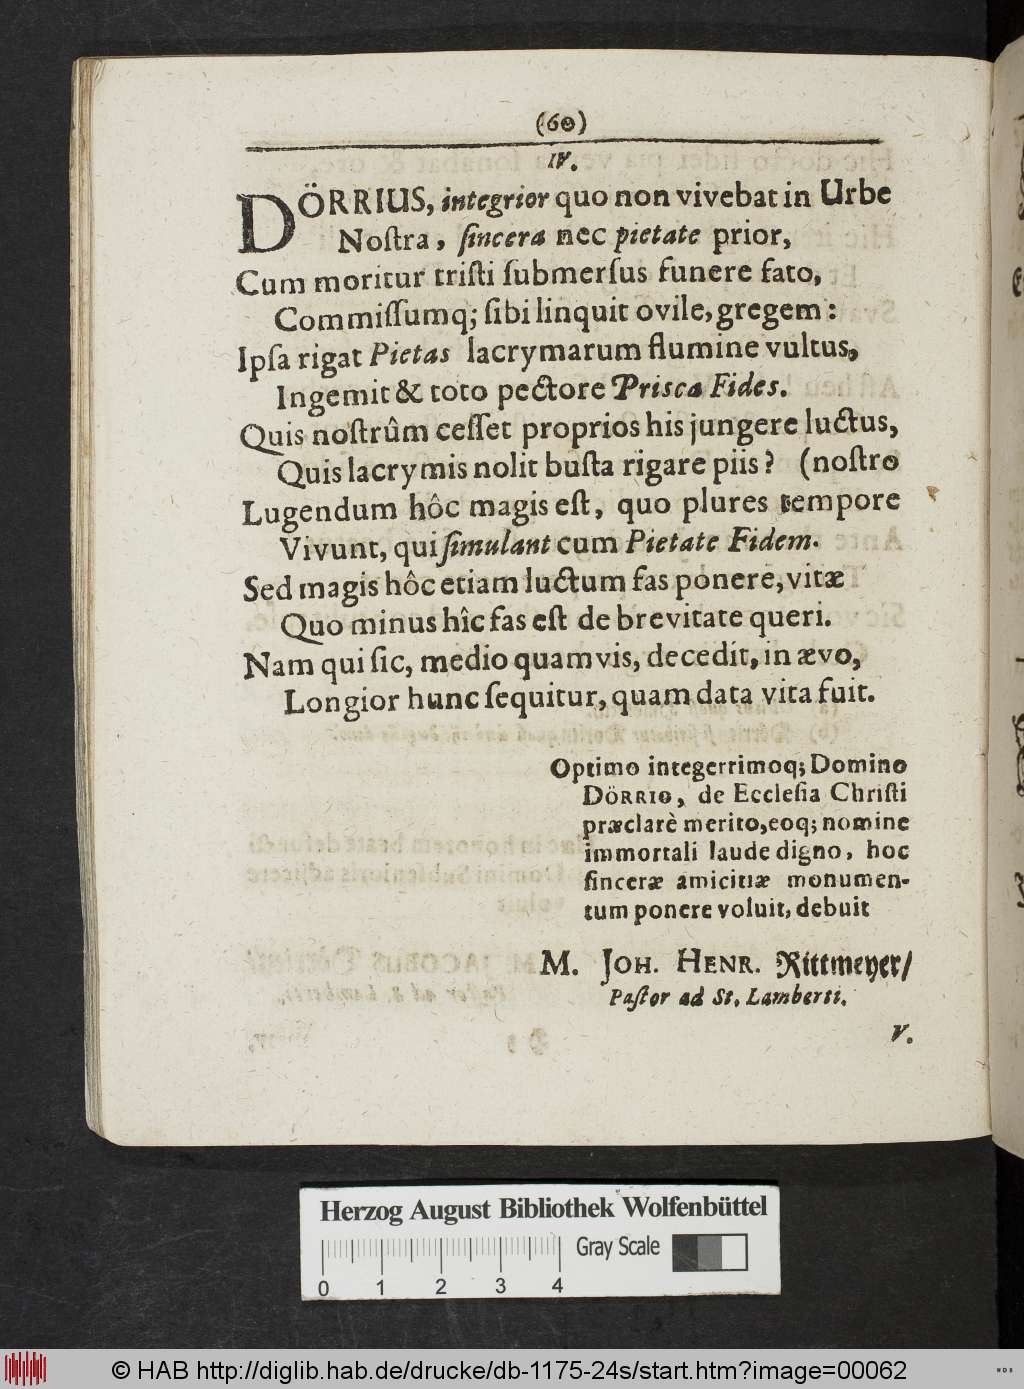 (60)
IV.
DÖRRIUS, integrior quo non vivebat in Urbe
Noſtra, ſincera nec pietate prior,
Cum moritur triſti ſubmerſus funere fato,
Commiſſumq; ſibi linquit ovile, gregem:
Ipſa rigat Pietas lacrymarum flumine vultus,
Ingemit & toto pectore Priſca Fides.
Quis noſtrûm ceſſet proprios his jungere luctus,
Quis lacrymis nolit buſta rigare piis? (noſtro
Lugendum hôc magis eſt, quo plures tempore
Vivunt, qui ſimulant cum Pietate Fidem.
Sed magis hôc etiam luctum fas ponere, vitæ
Quo minus hîc fas eſt de brevitate queri.
Nam qui ſic, medio quamvis, decedit, in ævo,
Longior hunc ſequitur, quam data vita fuit.
Optimo integerrimoq; Domino
DÖRRIO, de Eccleſia Chriſti
præclarè merito, eoq; nomine
immortali laude digno, hoc
ſinceræ amicitiæ monumen-
tum ponere voluit, debuit
M. JOH. HENR. Rittmeyer/
Paſtor ad St. Lamberti.
V.
Herzog August Bibliothek Wolfenbüttel
Gray Scale
0 1 2 3 4
© HAB http://diglib.hab.de/drucke/db-1175-24s/start.htm?image=00062